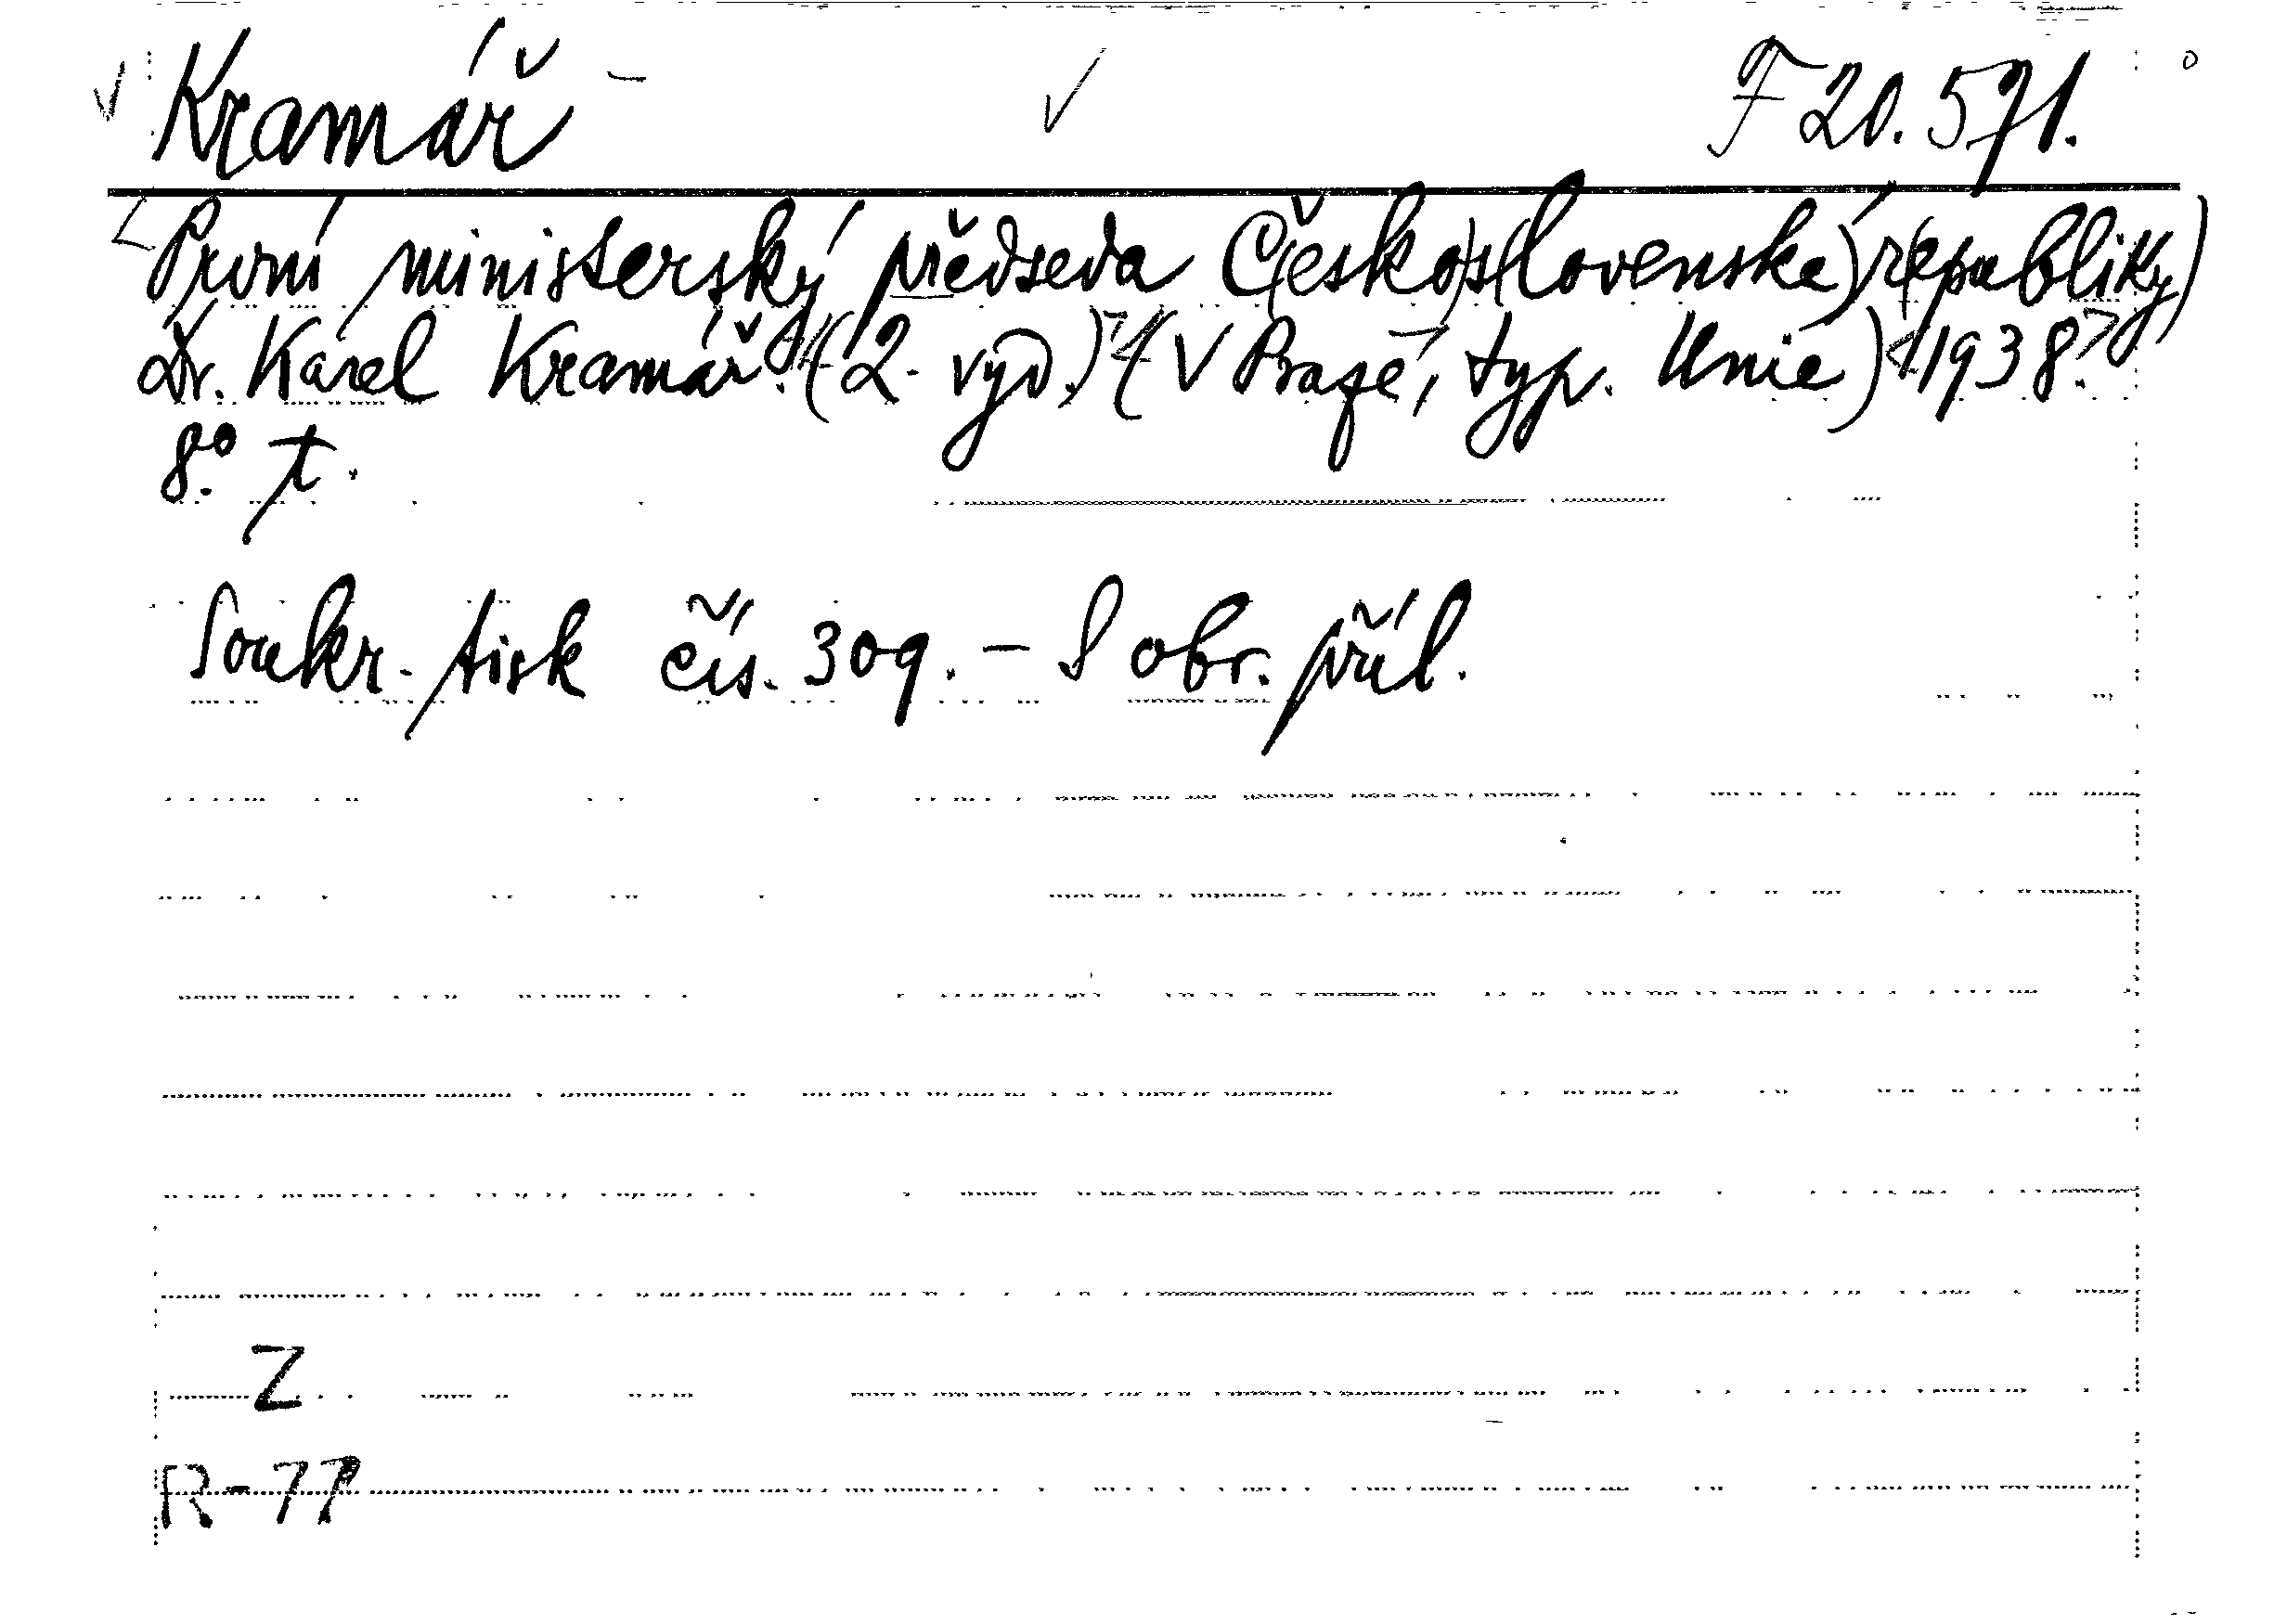 Kramář F 20.571.
První ministerský předseda Č(esko)s(lovenské) r(epubliky)
Dr. Karel Kramář. (2. vyd.) (V Praze, typ. Unie) 1938.
8° t.
Soukr. tisk čís. 309. – S obr. příl.
Z
R-77